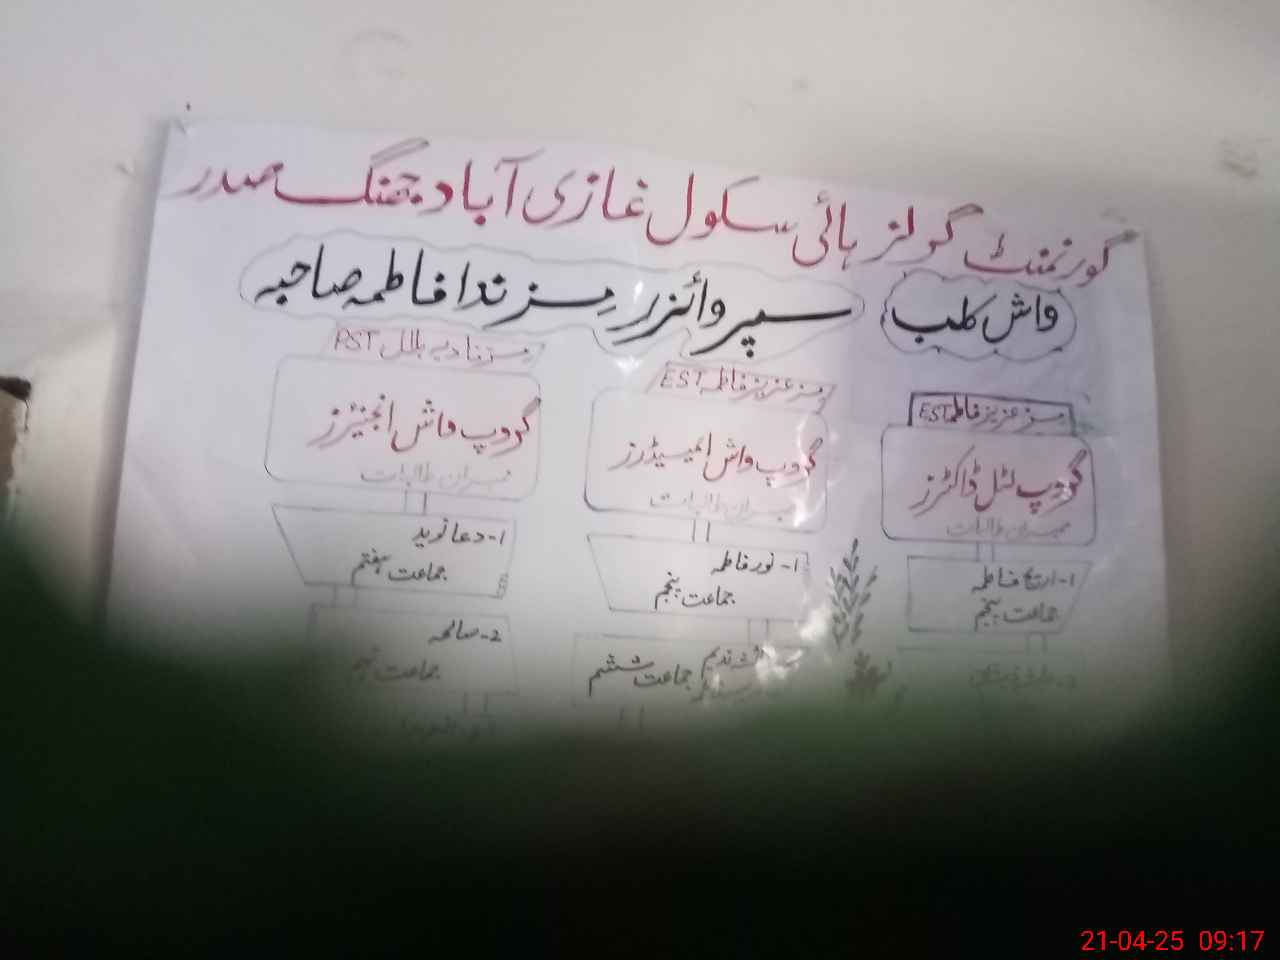 گورنمنٹ گرلز ہائی سکول غازی آباد جھنگ صدر
واش کلب
سپروائزر مسز ندا فاطمہ صاحبہ
مسز عزیز فاطمہ EST
گروپ لٹل ڈاکٹرز
ممبران طالبات
1-اریج فاطمہ
جماعت پنجم
مسز عزیز فاطمہ EST
گروپ واش ایمبیسیڈرز
ممبران طالبات
1-نور فاطمہ
جماعت پنجم
جماعت ششم
PST
گروپ واش انجنیئرز
ممبران طالبات
1-دعا نوید
جماعت ہفتم
2-صالحہ
جماعت
21-04-25 09:17